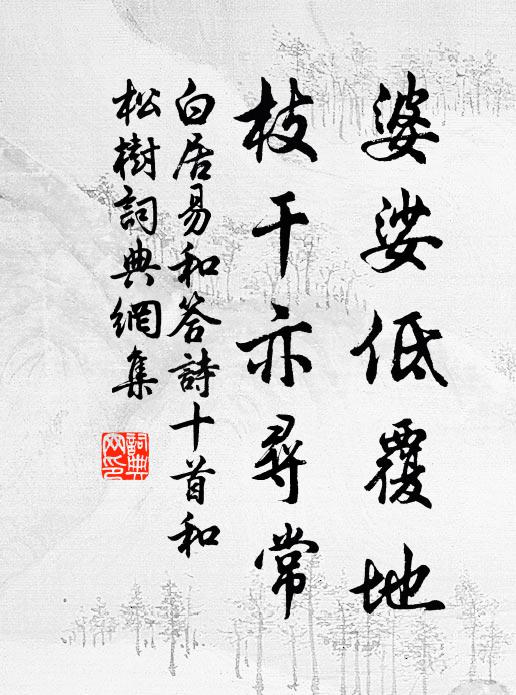 婆娑低覆地
枝干亦尋常
白居易和答詩十首和
松樹詞典網集
詞典
网印